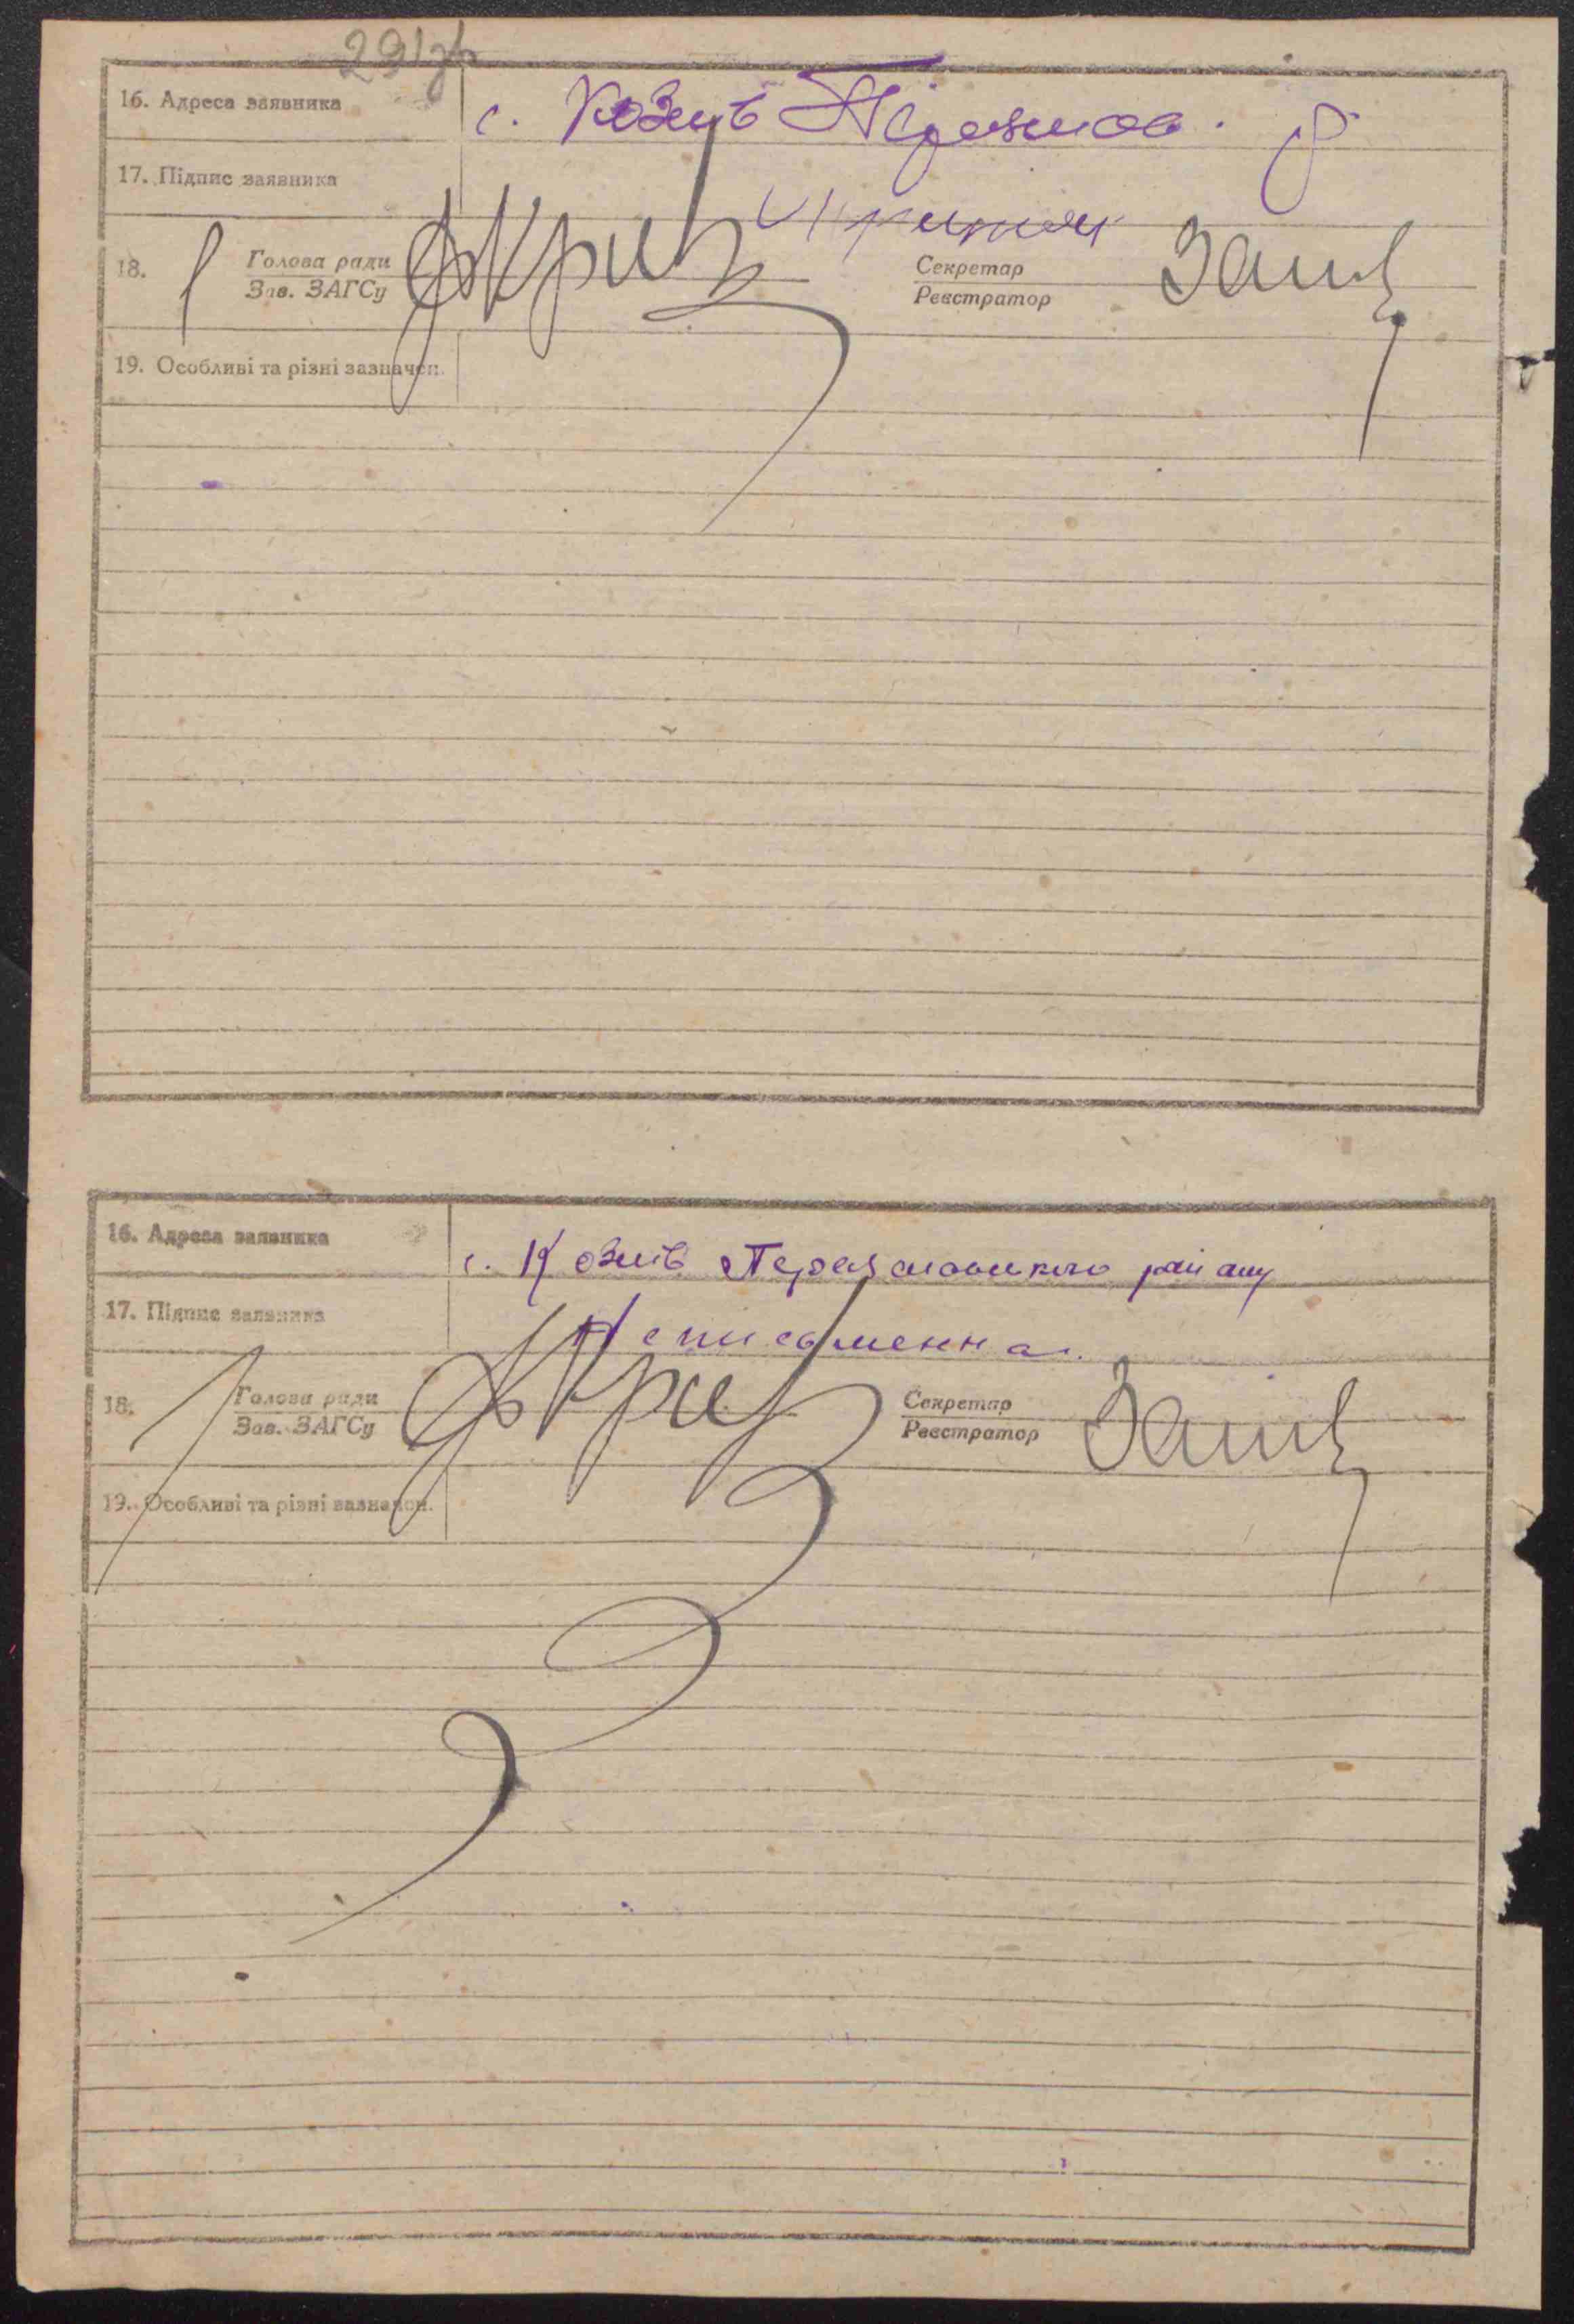 291зв
16. Адреса заявника
с. Козлів Переяслов. р
17. Підпис заявника
18. Голова ради
Зав. ЗАГСу
Секретар
Реєстратор
19. Особливі та різні зазначен.
16. Адреса заявника
с. Козлів Переяславського району
17. Підпис заявника
Неписьменна.
18. Голова ради
Зав. ЗАГСу
Секретар
Реєстратор
19. Особливі та різні зазначен.